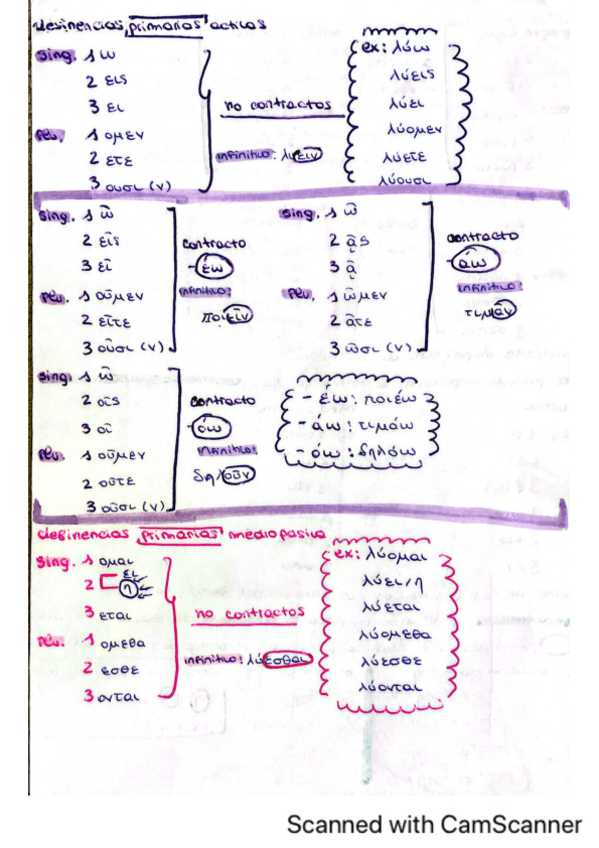 desinencias primarias activas
sing. 1 ω
2 εις
3 ει
plu. 1 ομεν
2 ετε
3 ουσι (ν)
no contractos
infinitivo: λυειν
ex: λύω
λύεις
λύει
λύομεν
λύετε
λύουσι
sing. 1 ῶ
2 εῖς
3 εῖ
plu. 1 οῦμεν
2 εῖτε
3 οῦσι (ν)
contracto
-έω
infinitivo:
ποιεῖν
sing. 1 ῶ
2 ᾷς
3 ᾷ
plu. 1 ῶμεν
2 ᾶτε
3 ῶσι (ν)
contracto
-άω
infinitivo:
τιμᾶν
sing. 1 ῶ
2 οῖς
3 οῖ
plu. 1 οῦμεν
2 οῦτε
3 οῦσι (ν)
contracto
-όω
infinitivo:
δηλοῦν
- έω: ποιέω
- άω: τιμάω
- όω: δηλόω
desinencias primarias mediopasiva
sing. 1 ομαι
2 ει
η
3 εται
plu. 1 ομεθα
2 εσθε
3 ονται
no contractos
infinitivo: λύεσθαι
ex: λύομαι
λύει/η
λύεται
λυόμεθα
λύεσθε
λύονται
Scanned with CamScanner